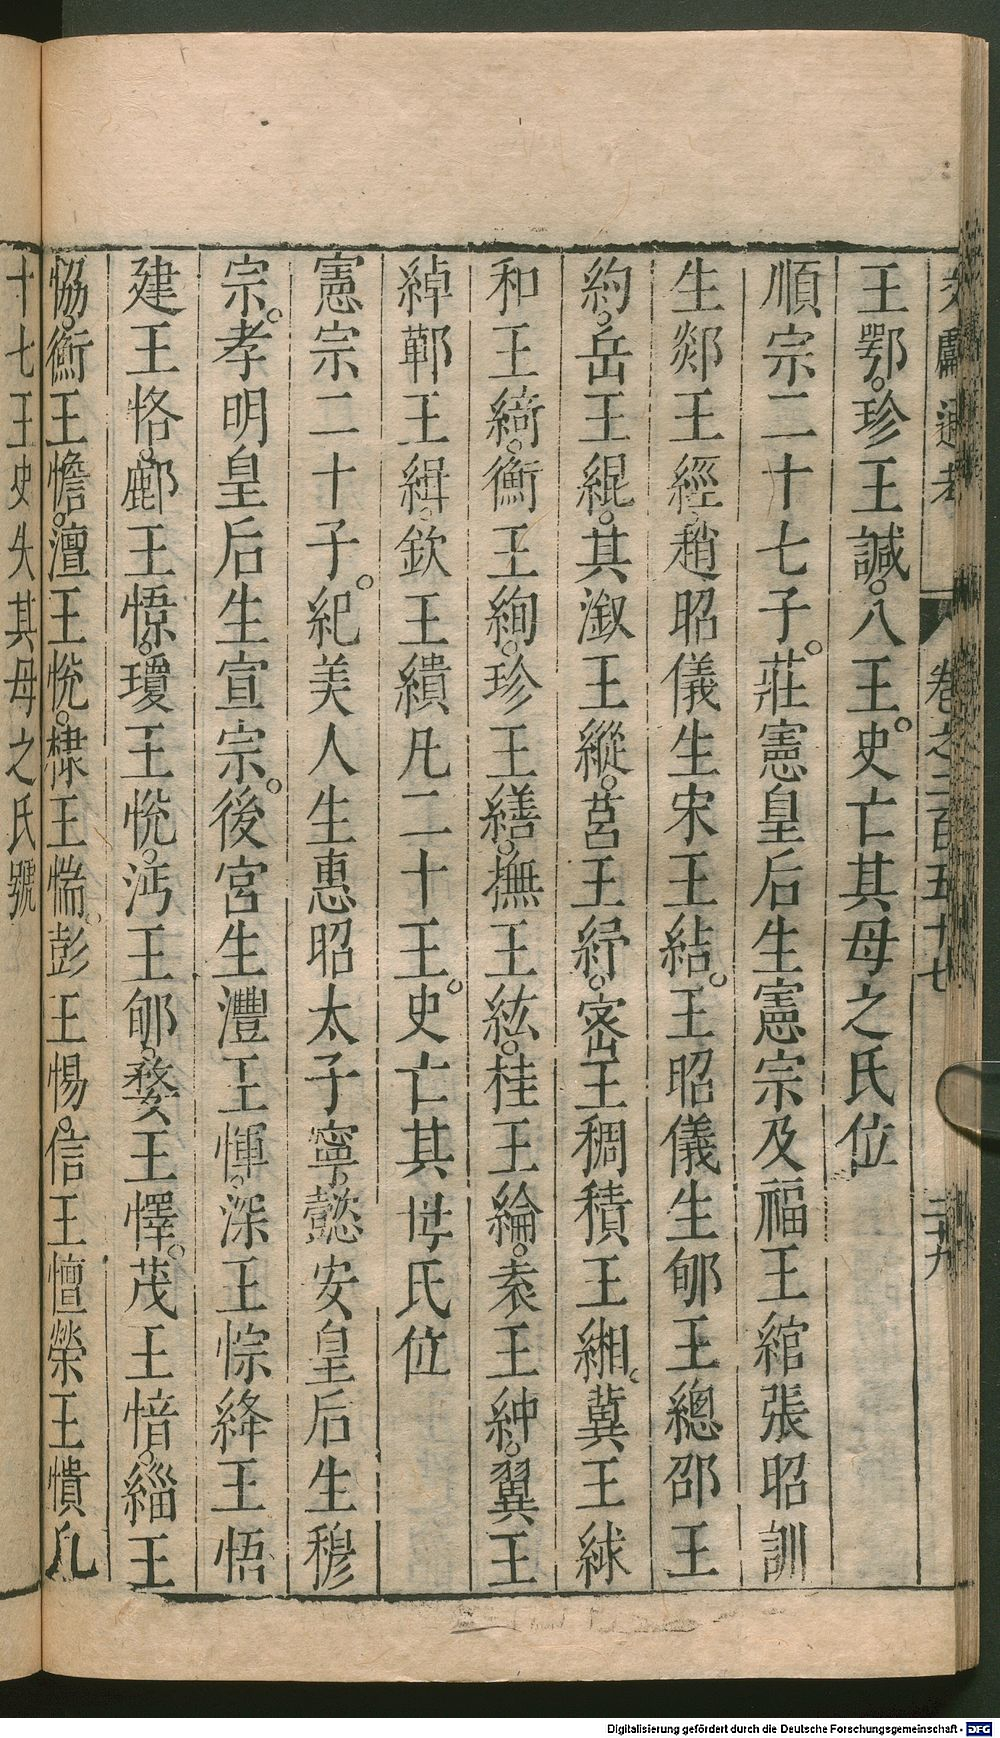 文獻通考 卷之二百五十七 二十九
王鄂。珍王諴。八王。史亡其母之氏位
順宗二十七子。莊憲皇后生憲宗及福王綰張昭訓
生郯王經。趙昭儀生宋王結。王昭儀生郇王總邵王
約。岳王緄。其溆王縱。莒王紓。宻王稠積王緗。冀王絿
和王綺。衡王絢。珍王繕。撫王紘。桂王綸。袁王紳。翼王
綽鄿王緝。欽王繢凡二十王。史亡其母氏位
憲宗二十子。紀美人生惠昭太子寧。懿安皇后生穆
宗。孝明皇后生宣宗。後宮生灃王惲。深王悰絳王悟
建王恪。鄜王憬。瓊王悅。沔王郇。婺王懌。茂王愔。緇王
恊。衡王憺。澶王㤞。棣王惴。彭王惕。信王㦪榮王憒凡
十七王史失其母之氏號
Digitalisierung gefördert durch die Deutsche Forschungsgemeinschaft - DFG